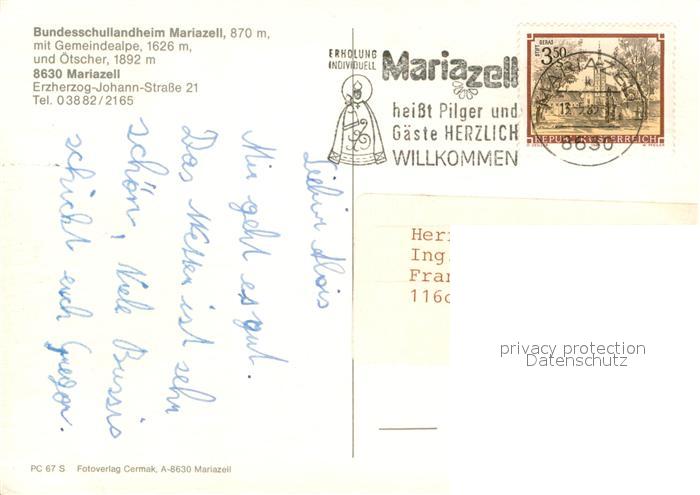 Bundesschullandheim Mariazell, 870 m,
mit Gemeindealpe, 1626 m,
und Ötscher, 1892 m
8630 Mariazell
Erzherzog-Johann-Straße 21
Tel. 0 38 82 / 21 65
ERHOLUNG
INDIVIDUELL
Mariazell
heißt Pilger und
Gäste HERZLICH
WILLKOMMEN
STIFT GERAS
350
REPUBLIK ÖSTERREICH
MARIAZELL
8630
Lieber Alois
Mir geht es gut.
Das Wetter ist sehr
schön, Viele Bussis
schickt euch Gregor.
Herr
Ing.
Fra
116
privacy protection
Datenschutz
PC 67 S Fotoverlag Cermak, A-8630 Mariazell